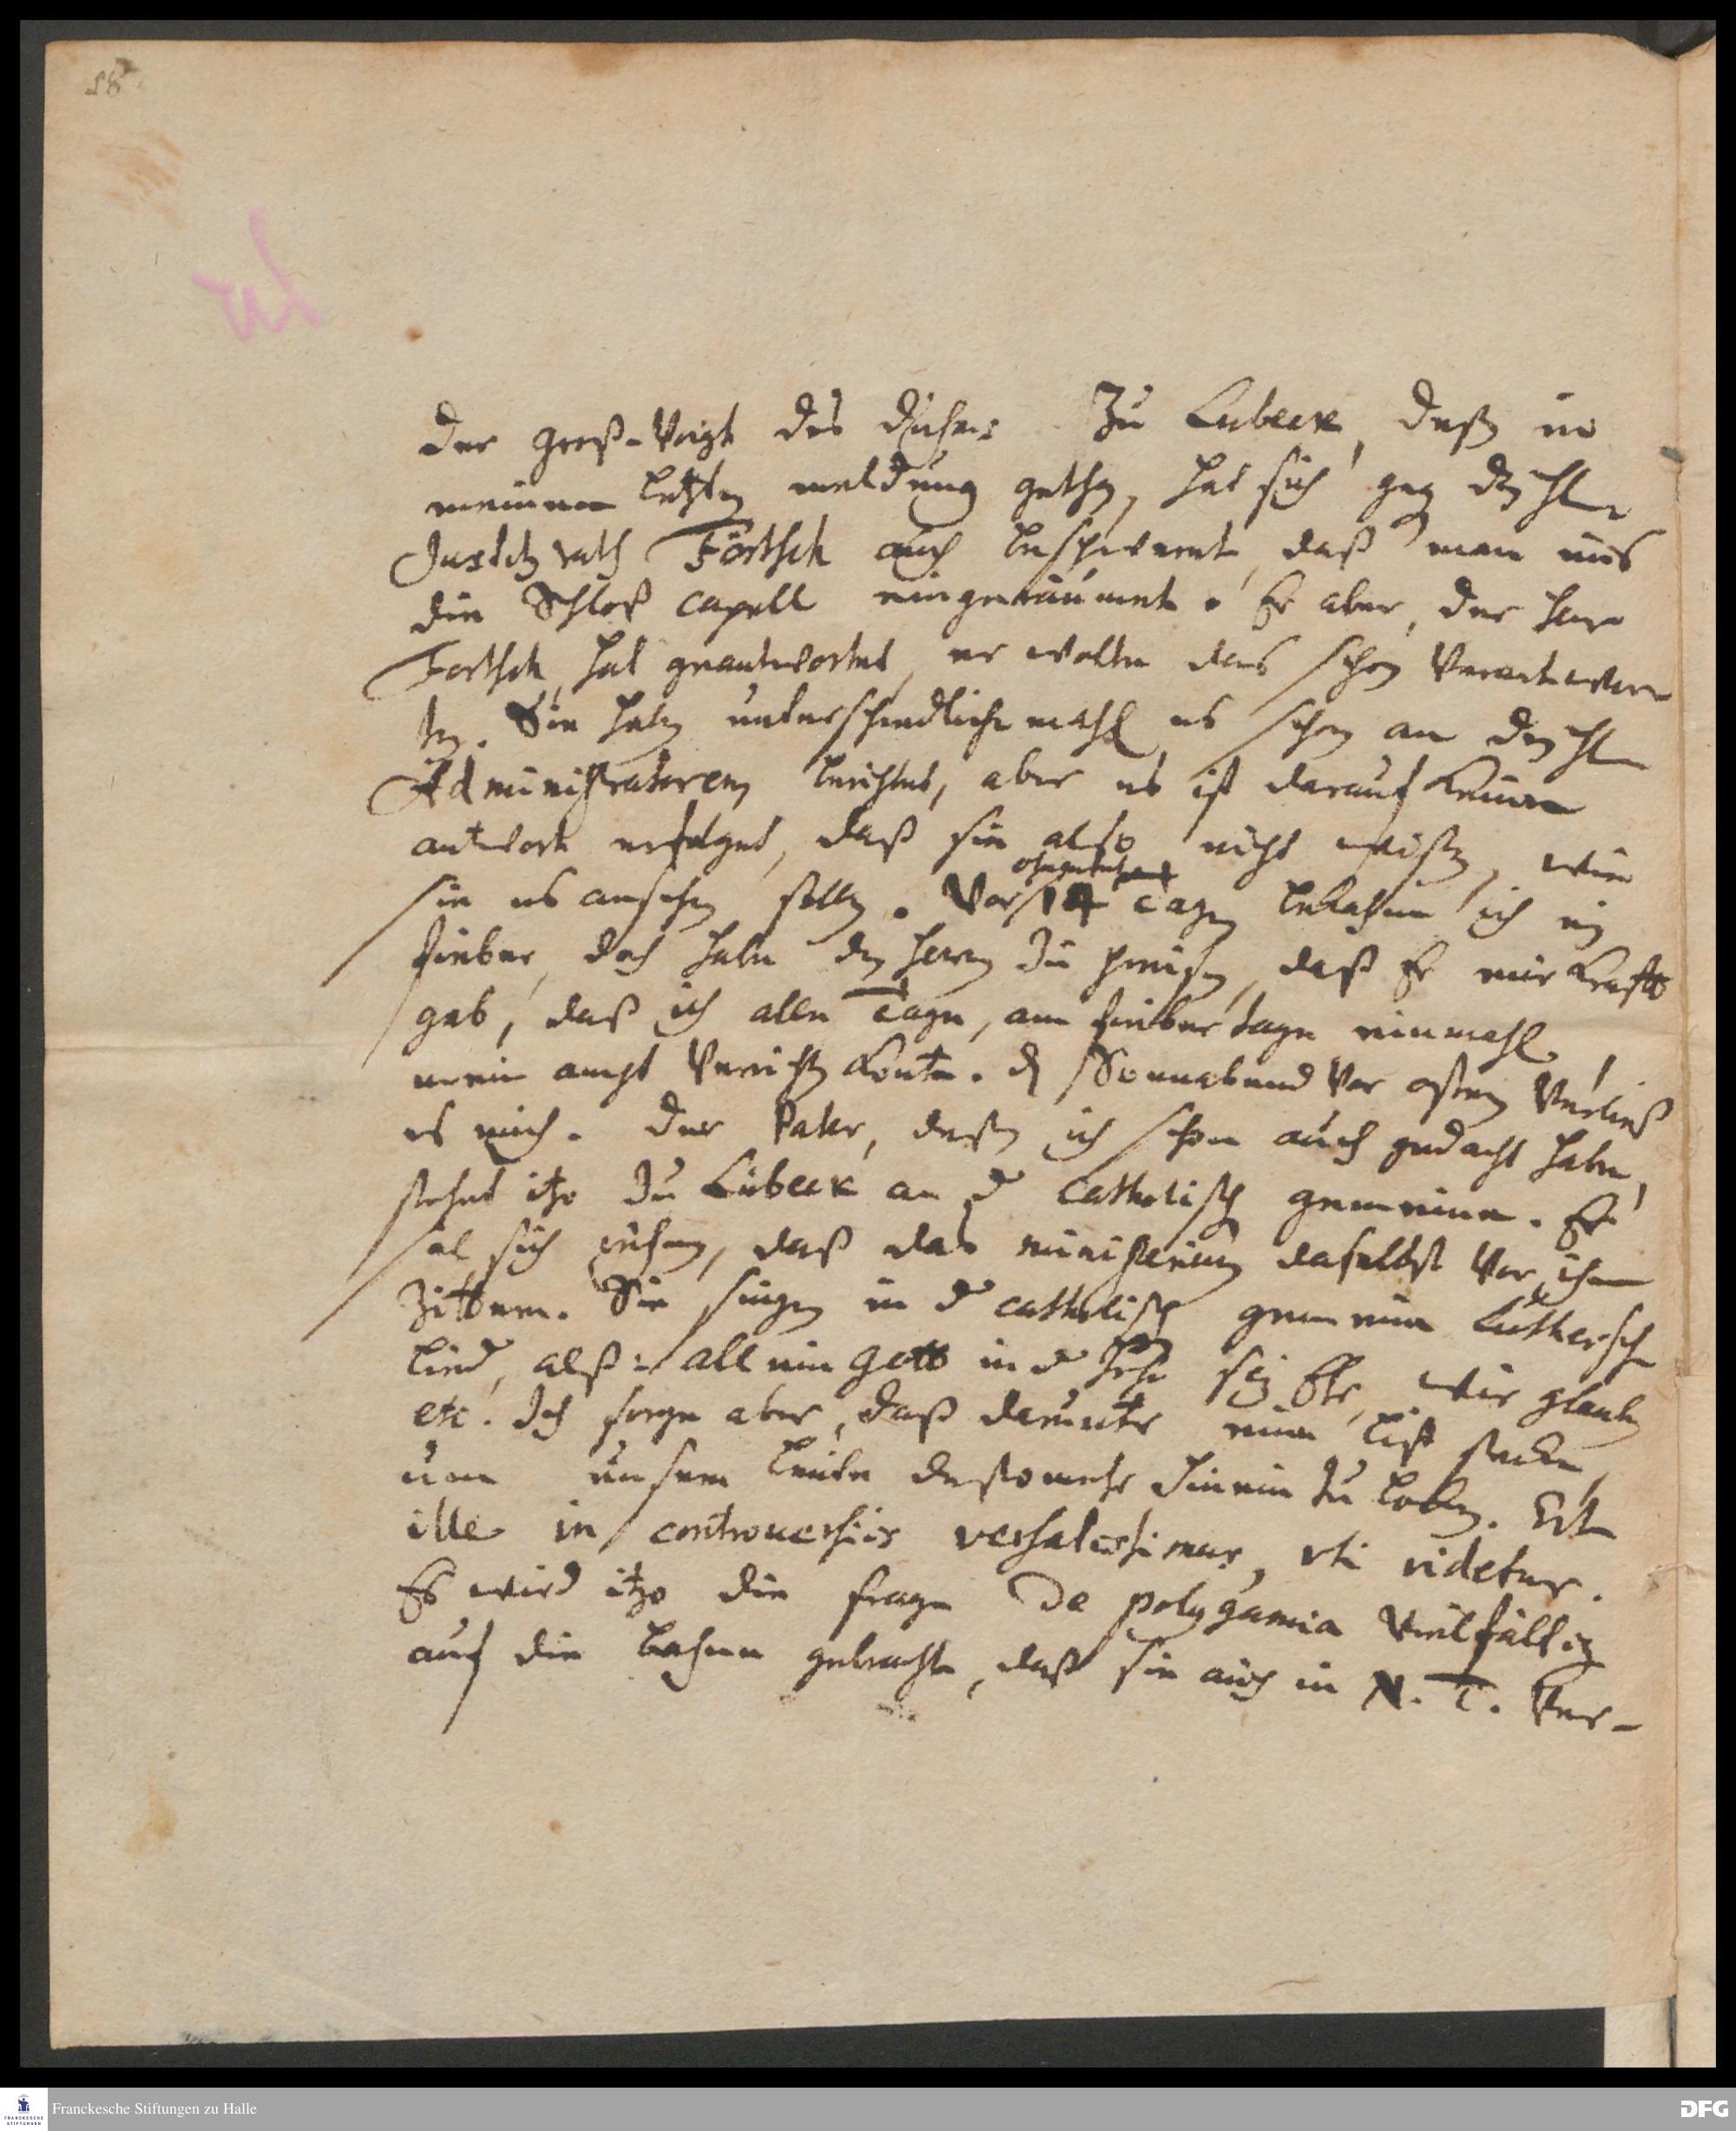 58
Der groß-Voigt des Duhms zu Lubeck, deßen in
meinem letzten meldung gethan, hat sich gegen den HE.
Justitzrath Förtsch auch beschweret, daß man uns
die Schloß capell eingeräumet. Er aber, der Herr
Förtsch, hat geantwortet, er wolte das schon verantwor-
ten. Sie haben unterschiedliche mahl es schon an den HE
Administratoren berichtet, aber es ist darauf keine
antwort erfolget, daß sie also nicht wißen, wie
sie es ansehen sollen. Vor ohngefehr 14 Tagen bekahme ich ein
fieber, doch habe den Herrn zu preisen, daß Er mir Krafft
gab, daß ich alle Tage, am fiebertage einmahl
mein ampt verrichten konte. den Sonnabend vor ostern verließ
es mich. Der Pater, deßen ich schon auch gedacht habe,
stehet itzo zu Lübeck an der Catholischen gemeine. Er
sol sich rühmen, daß das ministerium daselbst vor ihm
zittere. Sie singen in der catholischen gemeine Luthersche
lieder, alß: allein Gott in der Höhe sey Ehr, wir glauben
etc. Ich sorge aber, daß darunter eine list stecke,
um unsere leute destomehr hinein zu locken. Est
ille in controversiis versatissimus, uti videtur.
Es wird itzo die frage de polygamia vielfältig
auf die bahne gebracht, daß sie auch in N. T. ver-
Franckesche Stiftungen zu Halle
DFG